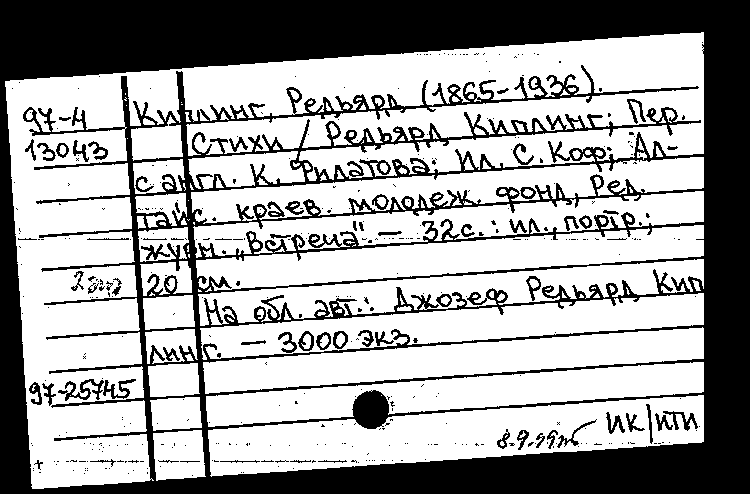 97-4 Киплинг, Редьярд (1865-1936).
13043 Стихи / Редьярд Киплинг; Пер.
с англ. К. Филатова; Ил. С. Коф; Ал-
тайс. краев. молодеж. фонд, Ред.
журн. „Встреча". — 32с.: ил., портр.;
2 экз 20 см.
На обл. авт.: Джозеф Редьярд Кип
линг. — 3000 экз.
97-25745
ИК/ИТИ